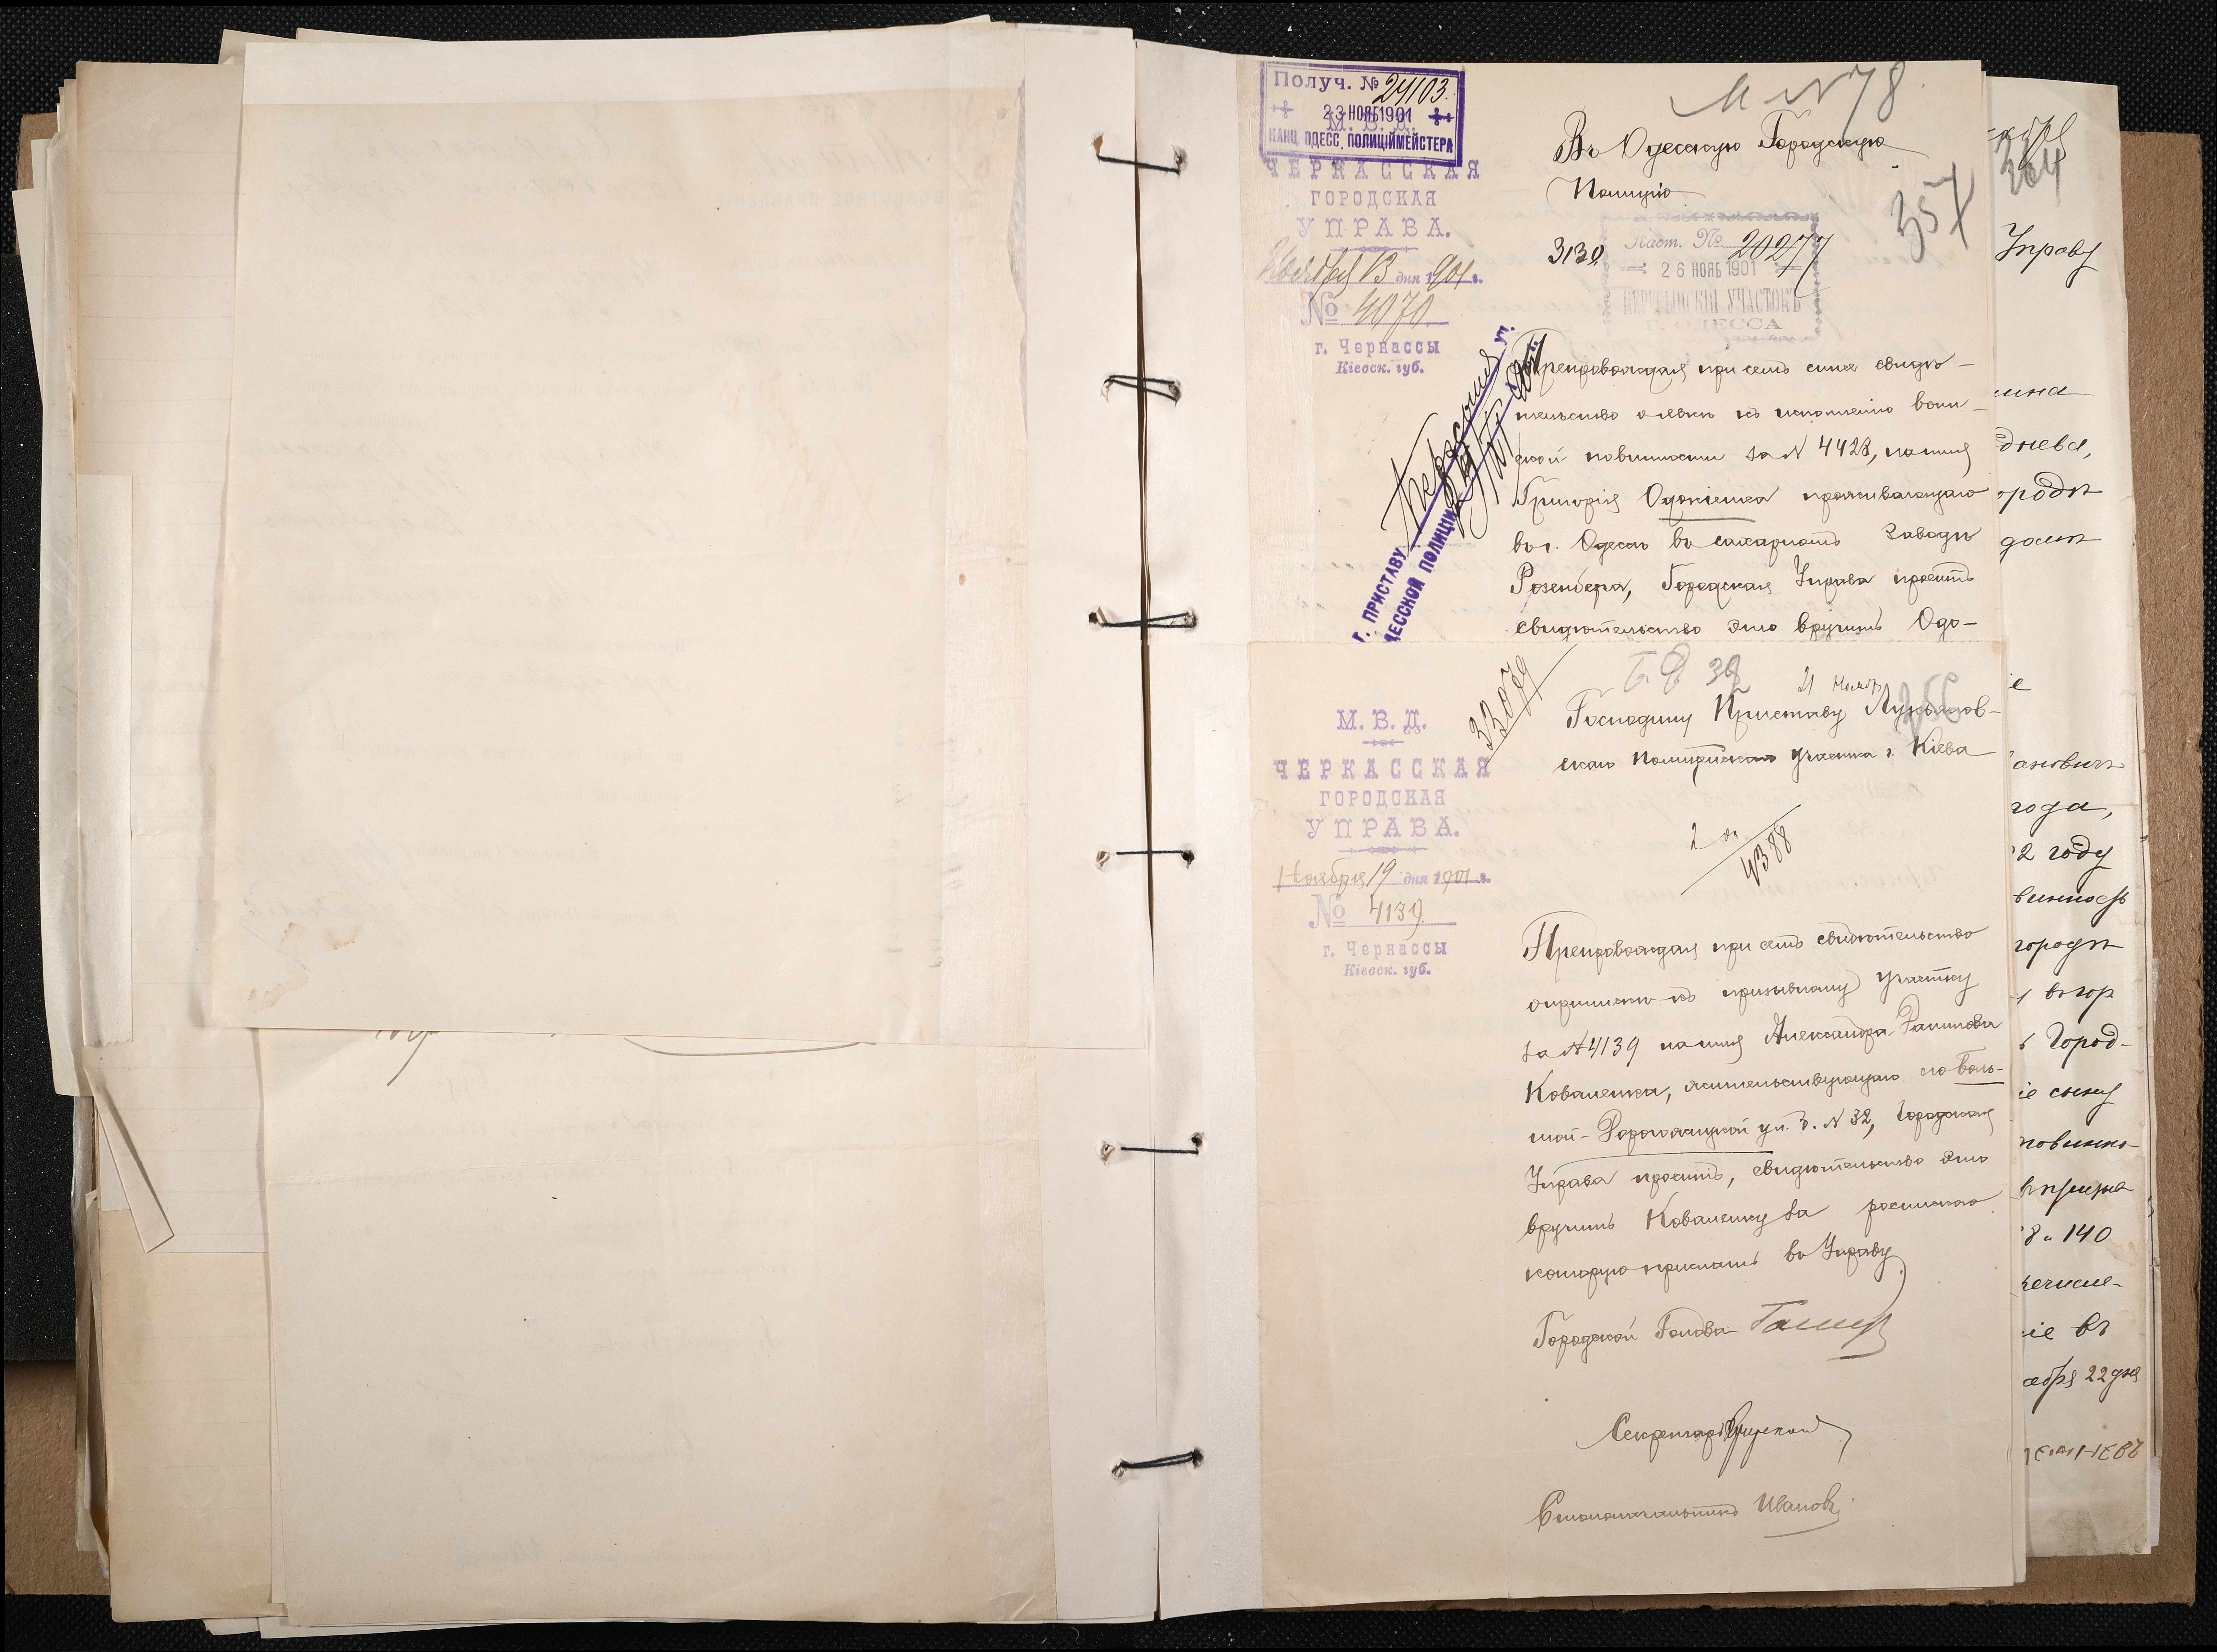 Получ. № 24103.
23 НОЯБ 1901
М. В. Д.
КАНЦ. ОДЕСС. ПОЛИЦІЙМЕЙСТЕРА
ЧЕРКАССКАЯ
ГОРОДСКАЯ
УПРАВА.
Ноября 13 дня 1901 г.
№ 4070
г. Черкассы
Кіевск. губ.
М N 78.
Въ Одесскую Городскую
Полицію
357
3130
Наст. №. 20277
26 НОЯБ 1901
ПЕРЕСЫПСКІЙ УЧАСТОКЪ
Г. ОДЕССА
Г. ПРИСТАВУ
ОДЕССКОЙ ПОЛИЦІИ
Препровождая при семъ сіе свидѣ-
тельство о явкѣ къ исполненію воин-
ской повинности за N 4428, на имя
Григорія Одокіенка проживающаго
въ г. Одессѣ въ сахарномъ заводѣ
Розенберга, Городская Управа проситъ
свидѣтельство это вручить Одо-
33079
21 Нояб
М. В. Д.
ЧЕРКАССКАЯ
ГОРОДСКАЯ
УПРАВА.
Ноября 19 дня 1901 г.
№ 4139
г. Черкассы
Кіевск. губ.
Господину Приставу Лукьянов-
скаго Полицейскаго участка г. Кіева
4388
Препровождая при семъ свидѣтельство
о припискѣ къ призывному участку
за N 4139 на имя Александра
Коваленка, жительствующаго по Боль-
шой-Дорогожицкой ул. д. N 32, Городская
Управа проситъ, свидѣтельство это
вручить Коваленку за роспискою
которую прислать въ Управу
Городской Голова
Секретарь
Столоначальникъ Ивановъ
364
Управу
днева,
ородѣ
ановичъ
года,
2 году
винность
городѣ
Город-
іе сыну
повинно-
8 и 140
іе въ
абря 22 дня